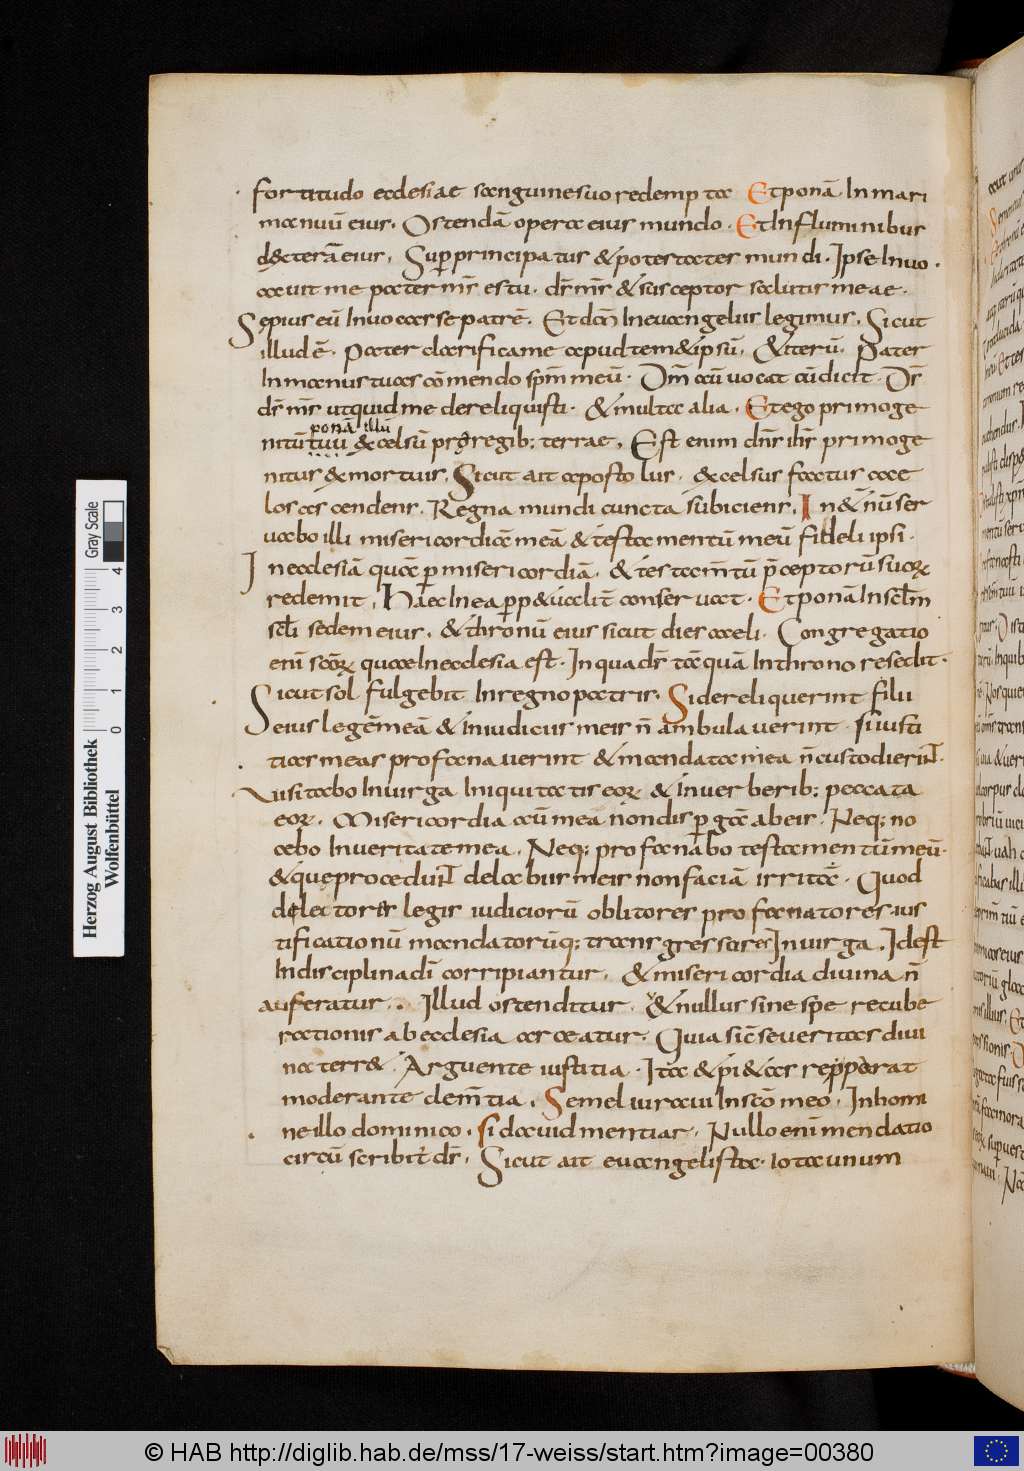 fortitudo ecclesiae sanguine suo redempta Et ponā In mari
manuū eius. Ostendā opera eius mundo. Et In fluminibus
dexterā eius, Sup principatus & potestates mundi. Ipse Invo
cavit me pater mr̄ es tu. ds̄ ms̄ & susceptor salutis meae.
Sepius eū Invocasse patrē. Et dn̄m In evangeliis legimus. Sicut
illud ē. Pater clarifica me apud temetipsū, & iterū. Pater
In manus tuas cōmendo spm̄ meū. Dm̄ aū vocat cū dicit. Ds̄
ds̄ ms̄ utquid me dereliquisti. & multa alia. Et ego primoge
ponā illū
nitū tuū & celsū prę regib; terrae, Est enim dns̄ ihs̄ primoge
nitus & mortuis. Sicut ait apostolus. & celsus factus cae
los ascendens. Regna mundi cuncta subiciens. In &ṅū ser
vabo illi misericordiā meā & testamentū meū fideli ipsi.
In ecclesiā quā p misericordiā. & testam̄tū p̄ceptorū suoꝝ
redemit, Haec Inea pp&uclit conservat. Et ponā In scl̄m
scl̄i sedem eius. & thronū eius sicut dies caeli. Congregatio
eni scōꝝ quae In ecclesia est. In qua ds̄ tā quā In throno resedit.
Sicut sol fulgebit In regno patris. Si dereliquerint filii
eius legē meā & In iudiciis meis n̄ ambulaverint. si iusti
tias meas profanaverint & mandata mea n̄ custodierint.
Visitabo In virga Iniquitatis eoꝝ & In verberib; peccata
eoꝝ. Misericordia aū meā non disꝑgā ab eis. Neq; no
cebo In veritate mea. Neq; profanabo testamentū meū.
& que procedunt de labiis meis non faciā irrita. Quod
delectores legis iudiciorū oblitores profanatores ius
tificationū mandatorūq; transgressores In virga. Idest
In disciplina dī corripiantur, & misericordia divina n̄
auferatur.. Illud ostenditur. & nullus sine spe recube
rationis ab ecclesia arceatur. Quia sic severitas divi
na terr&. Arguente iustitia. Ita & pi&as repperat
moderante clem̄tia. Semel iuravi In scō meo. In homi
ne illo dominico. si david mentiar. Nullo eni mendatio
circū scribit ds̄. Sicut ait evangelista. iota unum
Herzog August Bibliothek
Wolfenbüttel
Gray Scale
0 1 2 3 4
© HAB http://diglib.hab.de/mss/17-weiss/start.htm?image=00380